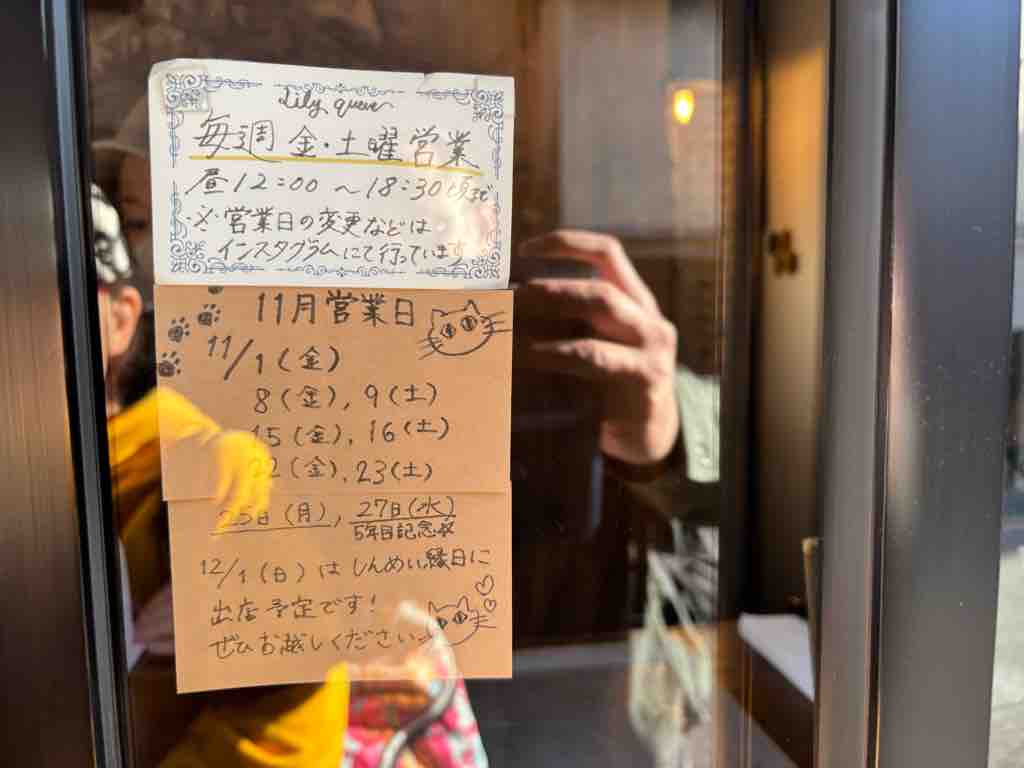 Lily queen
毎週金・土曜営業
昼12:00〜18:30頃まで
※営業日の変更などは
インスタグラムにて行っています
11月営業日
11/1(金)
8(金), 9(土)
15(金), 16(土)
22(金), 23(土)
25日(月), 27日(水)
5年目記念日
12/1(日)はしんめい縁日に
出店予定です!
ぜひお越しください